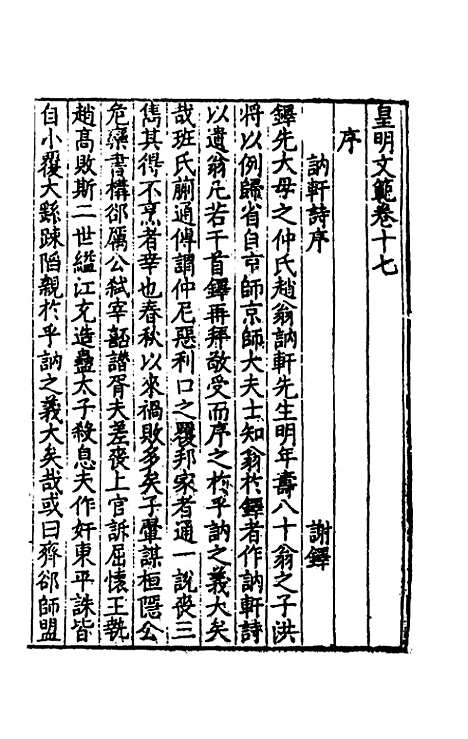 皇明文範卷十七
序
訥軒詩序 謝鐸
鐸先大母之仲氏趙翁訥軒先生明年壽八十翁之子洪
將以例歸省自京師京師大夫士知翁於鐸者作訥軒詩
以遺翁凡若干首鐸再拜敬受而序之於乎訥之義大矣
哉班氏蒯通傳謂仲尼惡利口之覆邦家者通一說喪三
雋其得不烹者幸也春秋以來禍敗多矣子翬謀桓隱公
危欒書構郤厲公弒宰嚭譖胥夫差喪上官訴屈懷王執
趙高敗斯二世縊江充造蠱太子殺息夫作奸東平誅皆
自小覆大繇疎陷親於乎訥之義大矣哉或曰齊郤師盟